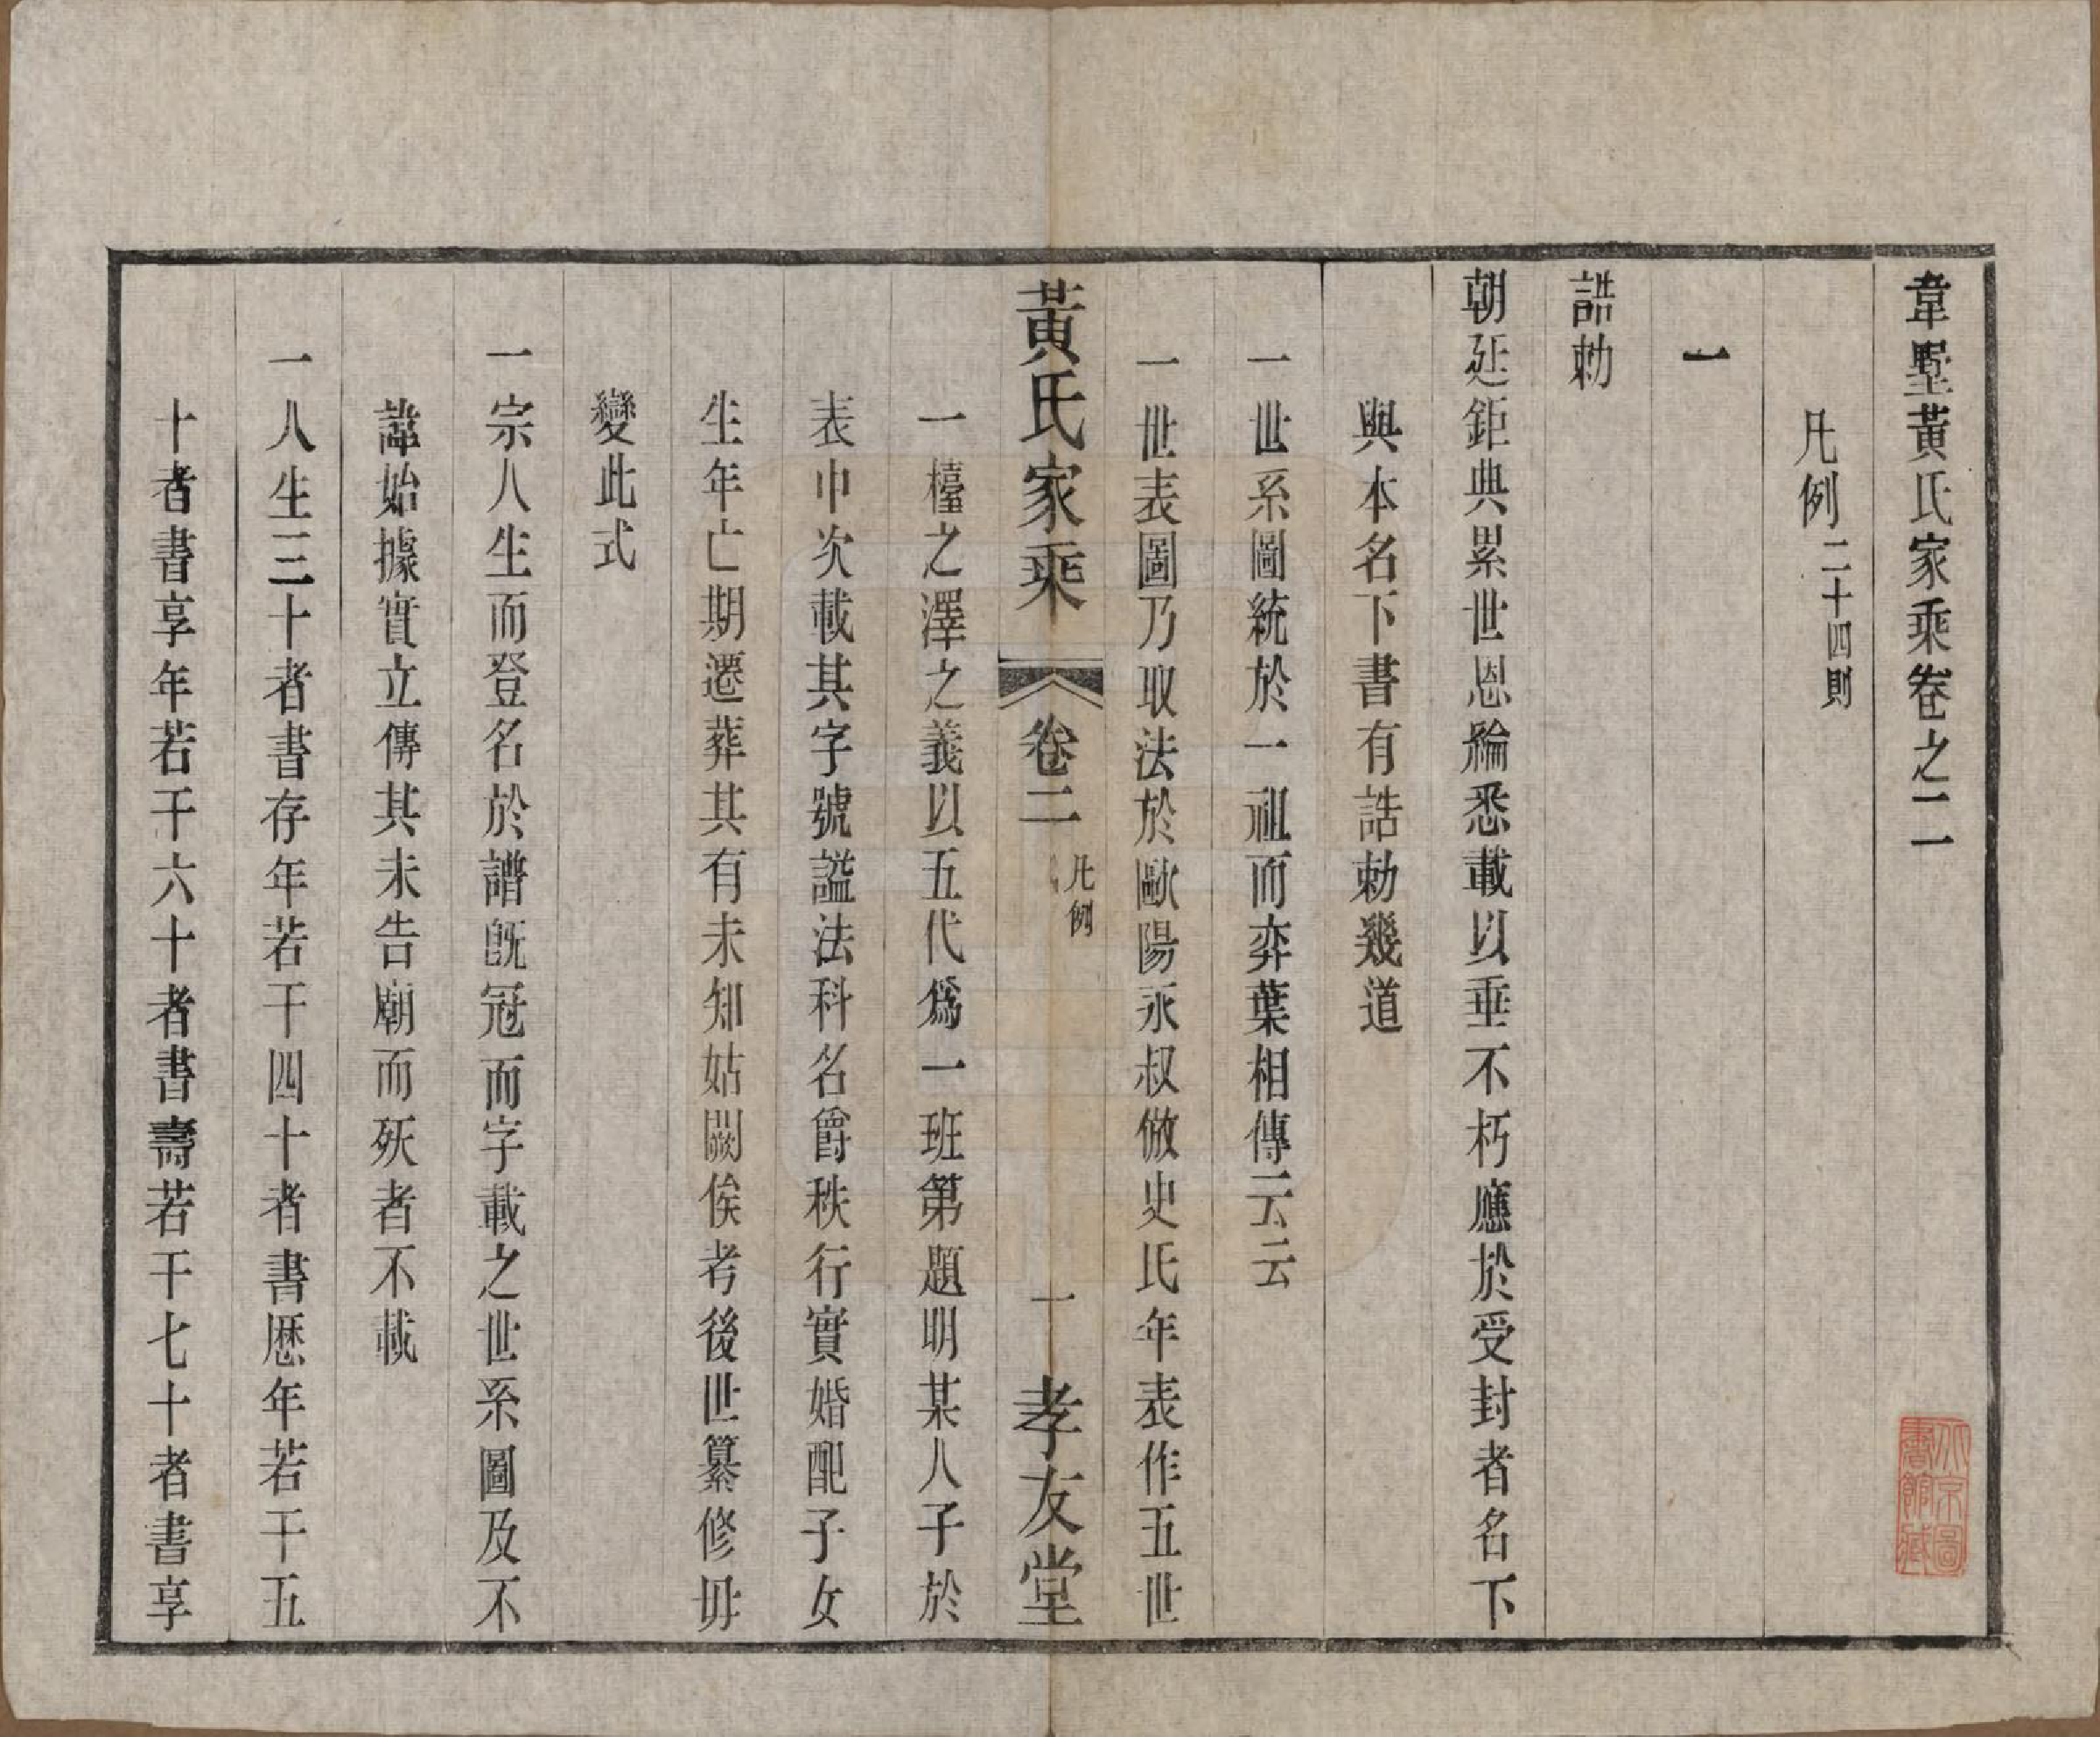 韋墅黃氏家乘卷之二一
凡例二十四則
一
誥勅
朝廷鉅典累世恩綸悉載以垂不朽應於受封者名下
與本名下書有誥勅幾道
一世系圖統於一祖而奕葉相傳云云
一世表圖乃取法於歐陽永叔倣史氏年表作五世
黃氏家乘
卷二
凡例
一
孝友堂
一檯之澤之義以五代爲一班第題明某人子於
表中次載其字號謚法科名爵秩行實婚配子女
生年亡期遷葬其有未知姑闕俟考後世纂修毋
變此式
一宗人生而登名於譜旣冠而字載之世系圖及不
諱始據實立傳其未告廟而殀者不載
一人生三十者書存年若干四十者書歷年若干五
十者書享年若干六十者書壽若干七十者書享
北京圖
書館藏